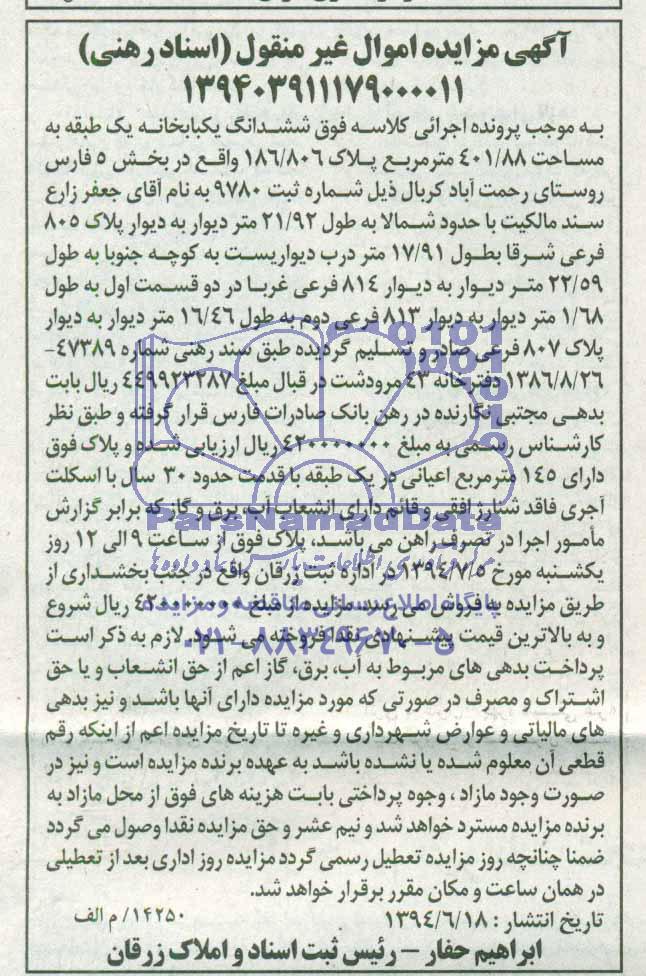 آگهی مزایده اموال غیر منقول (اسناد رهنی)
۱۳۹۴۰۳۹۱۱۱۷۹۰۰۰۰۱۱
به موجب پرونده اجرائی کلاسه فوق ششدانگ یکبابخانه یک طبقه به
مساحت ۴۰۱/۸۸ مترمربع پلاک ۱۸۶/۸۰۶ واقع در بخش ۵ فارس
روستای رحمت آباد کربال ذیل شماره ثبت ۹۷۸۰ به نام آقای جعفر زارع
سند مالکیت با حدود شمالا به طول ۲۱/۹۲ متر دیوار به دیوار پلاک ۸۰۵
فرعی شرقا بطول ۱۷/۹۱ متر درب دیواریست به کوچه جنوبا به طول
۲۲/۵۹ متر دیوار به دیوار ۸۱۴ فرعی غربا در دو قسمت اول به طول
۱/۶۸ متر دیوار به دیوار ۸۱۳ فرعی دوم به طول ۱۶/۴۶ متر دیوار به دیوار
پلاک ۸۰۷ فرعی صادر و تسلیم گردیده طبق سند رهنی شماره ۴۷۳۸۹-
۱۳۸۶/۸/۲۶ دفترخانه ۴۳ مرودشت در قبال مبلغ ۴۴۹۹۲۳۲۸۷ ریال بابت
بدهی مجتبی نگارنده در رهن بانک صادرات فارس قرار گرفته و طبق نظر
کارشناس رسمی به مبلغ ۴۲۰۰۰۰۰۰۰ ریال ارزیابی شده و پلاک فوق
دارای ۱۴۵ مترمربع اعیانی در یک طبقه با قدمت حدود ۳۰ سال با اسکلت
آجری فاقد شناژ افقی و قائم دارای انشعاب آب، برق و گاز که برابر گزارش
مأمور اجرا در تصرف راهن می باشد، پلاک فوق از ساعت ۹ الی ۱۲ روز
یکشنبه مورخ ۱۳۹۴/۷/۵ در اداره ثبت زرقان واقع در جنب بخشداری از
طریق مزایده به فروش می رسد. مزایده از مبلغ ۴۲۰۰۰۰۰۰۰ ریال شروع
و به بالاترین قیمت پیشنهادی نقدا فروخته می شود. لازم به ذکر است
پرداخت بدهی های مربوط به آب، برق، گاز اعم از حق انشعاب و یا حق
اشتراک و مصرف در صورتی که مورد مزایده دارای آنها باشد و نیز بدهی
های مالیاتی و عوارض شهرداری و غیره تا تاریخ مزایده اعم از اینکه رقم
قطعی آن معلوم شده یا نشده باشد به عهده برنده مزایده است و نیز در
صورت وجود مازاد ، وجوه پرداختی بابت هزینه های فوق از محل مازاد به
برنده مزایده مسترد خواهد شد و نیم عشر و حق مزایده نقدا وصول می گردد
ضمنا چنانچه روز مزایده تعطیل رسمی گردد مزایده روز اداری بعد از تعطیلی
در همان ساعت و مکان مقرر برقرار خواهد شد.
تاریخ انتشار : ۱۳۹۴/۶/۱۸ ۱۴۲۵۰/ م الف
ابراهیم حفار – رئیس ثبت اسناد و املاک زرقان
ParsNamadData
پایگاه اطلاع رسانی مناقصه و مزایده
۰۲۱-۸۸۳۴۹۶۷۰-۵